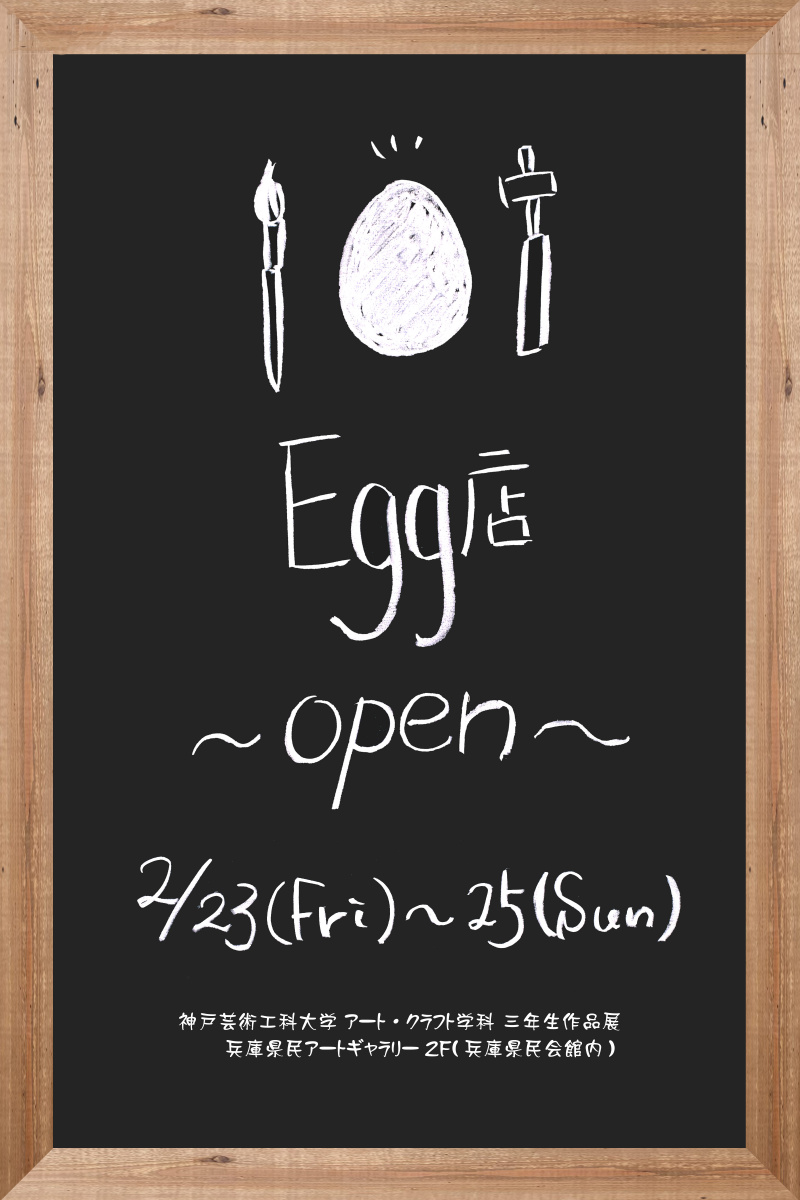 Egg店
～open～
2/23(Fri)～25(Sun)
神戸芸術工科大学 アート・クラフト学科 三年生作品展
兵庫県民アートギャラリー 2F(兵庫県民会館内)